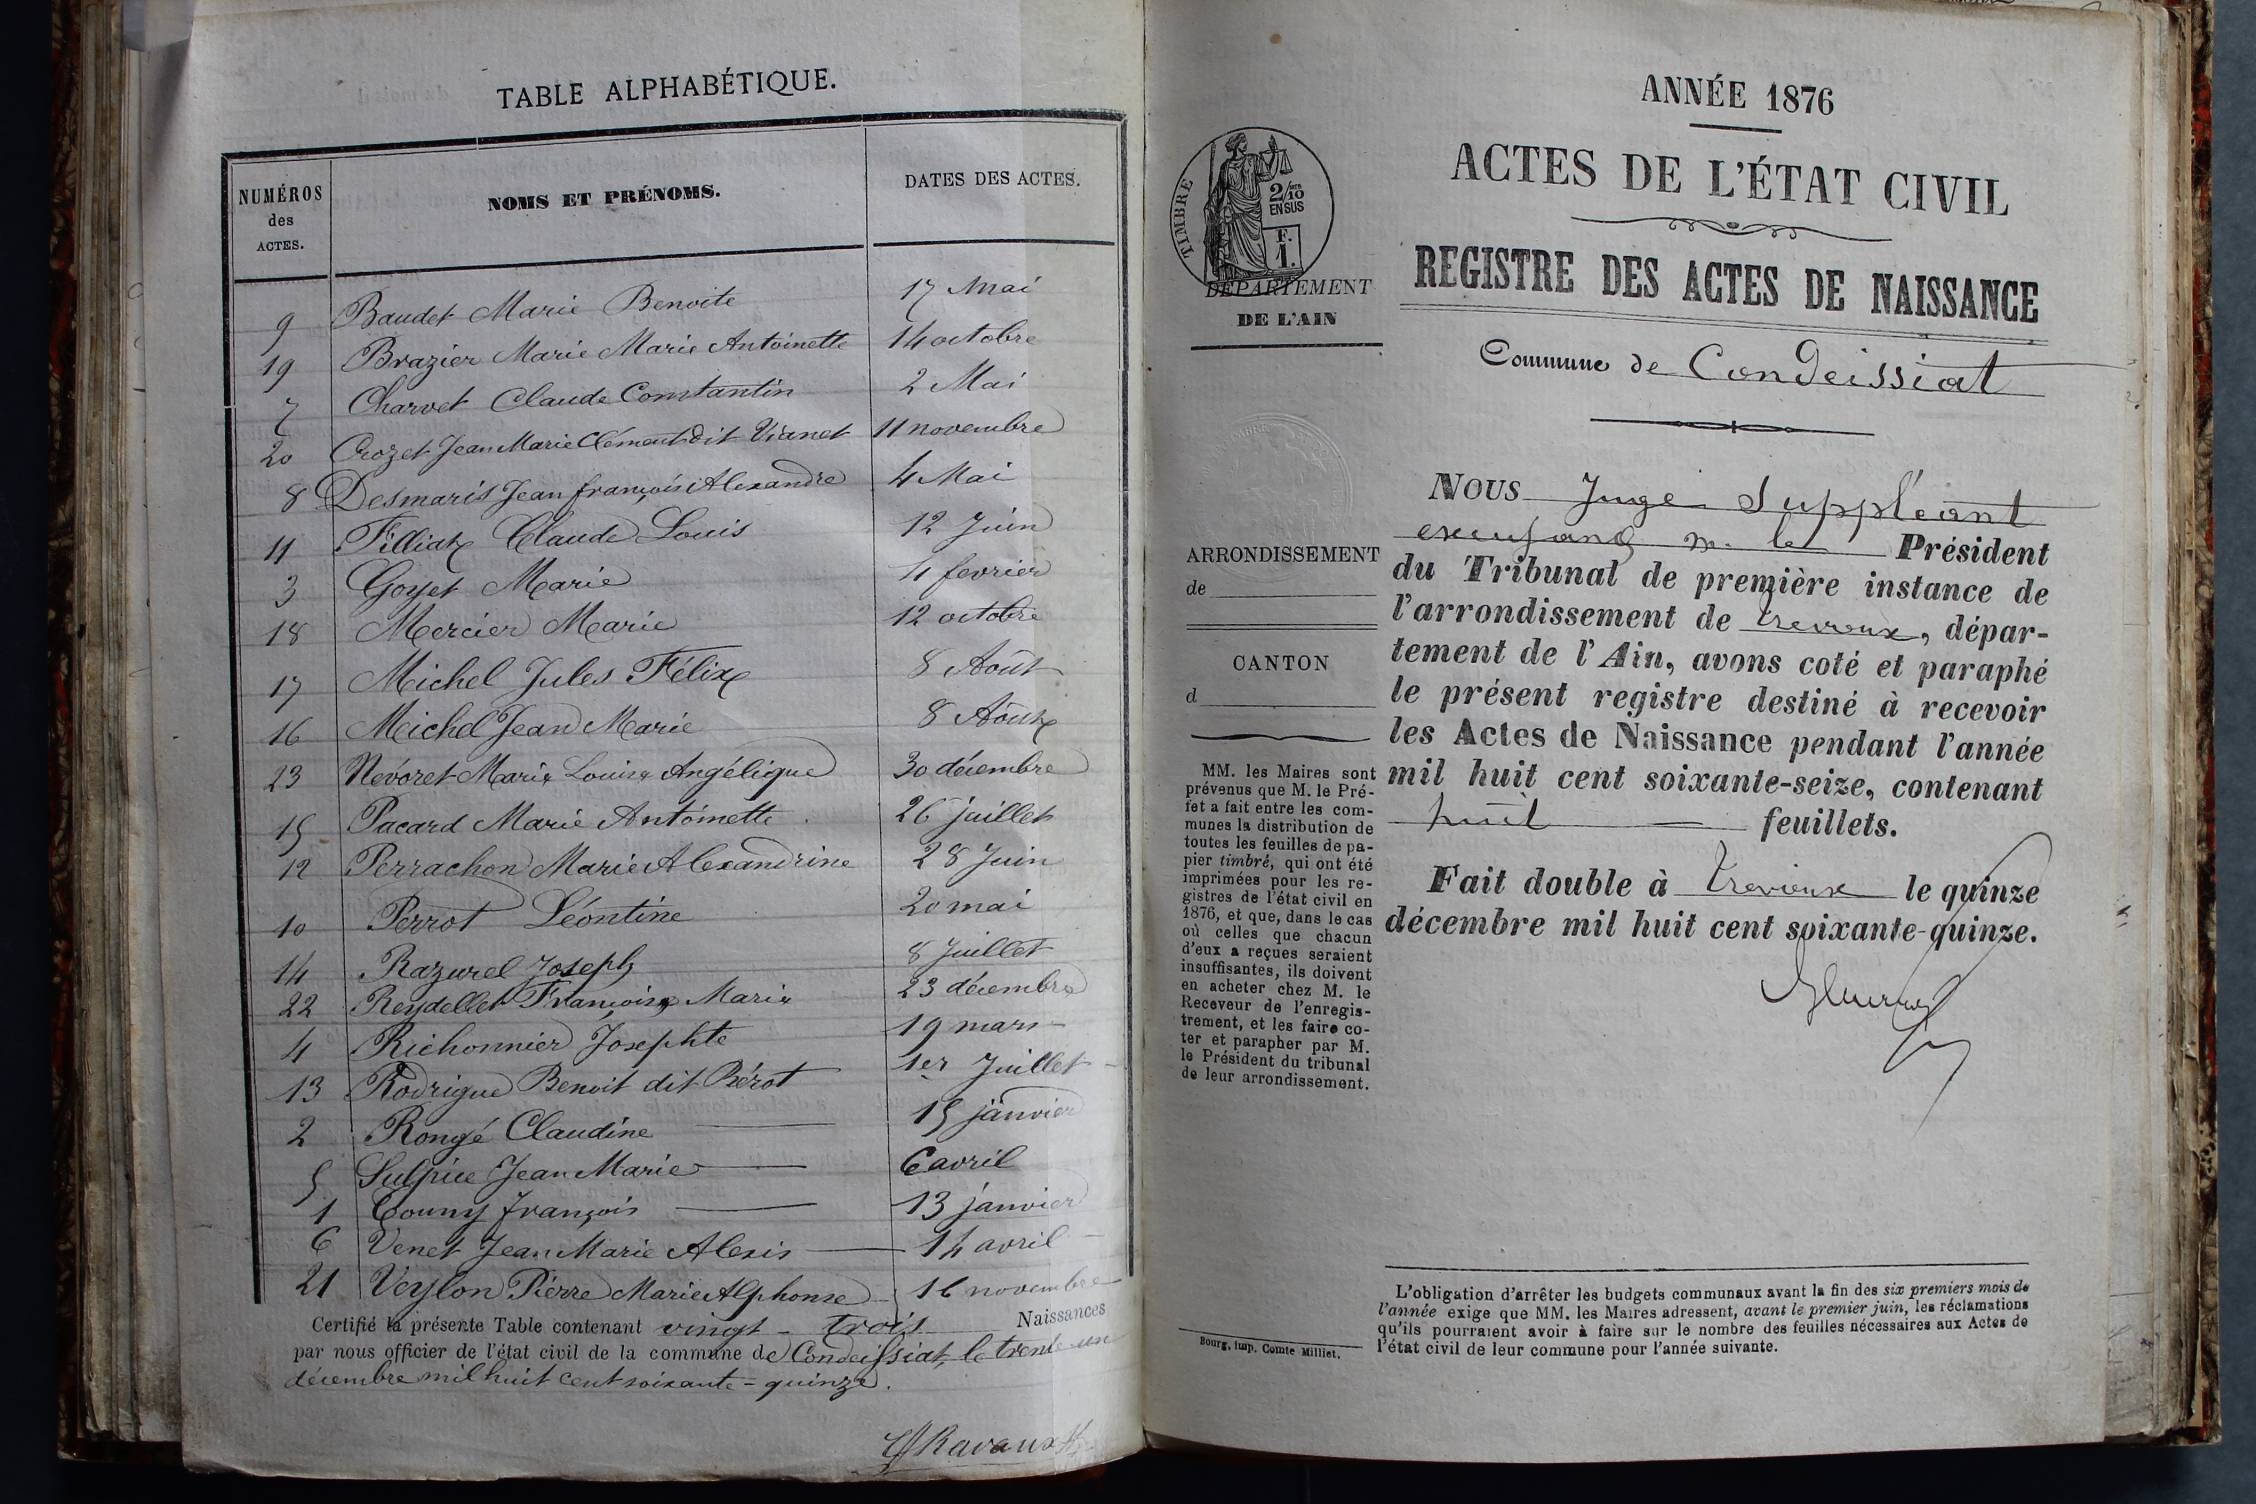 TABLE ALPHABÉTIQUE.
NUMÉROS
des
ACTES.
NOMS ET PRÉNOMS.
DATES DES ACTES.
9 Baudet Marie Benoite 17 Mai
19 Brazier Marie Marie Antoinette 14 octobre
7 Charvet Claude Constantin 2 Mai
20 Crozet Jean Marie Clément dit Vianet 11 novembre
8 Desmaris Jean françois Alexandre 4 Mai
11 Filliat Claude Louis 12 Juin
3 Goyet Marie 4 fevrier
18 Mercier Marie 12 octobre
17 Michel Jules Félix 8 Août
16 Michel Jean Marie 8 Août
23 Nevoret Marie Louise Angélique 30 décembre
15 Pacard Marie Antoinette 26 juillet
12 Perrachon Marie Alexandrine 28 Juin
10 Perrot Léontine 20 mai
14 Razurel Joseph 8 Juillet
22 Reydellet Françoise Marie 23 décembre
4 Richonnier Josephte 19 mars
13 Rodrigue Benoit dit Pérot 1er Juillet
2 Rongé Claudine 15 janvier
5 Sulpice Jean Marie 6 avril
1 Touny françois 13 janvier
6 Venet Jean Marie Alexis 14 avril
21 Veylon Pierre Marie Alphonse 16 novembre
Certifié la présente Table contenant vingt-trois Naissances
par nous officier de l'état civil de la commune de Condeissiat, le trente un
décembre mil huit cent soixante-quinze.
Ravaux
ANNÉE 1876
ACTES DE L'ÉTAT CIVIL
REGISTRE DES ACTES DE NAISSANCE
Commune de Condeissiat
TIMBRE
2/10
EN SUS
F.
1.
DÉPARTEMENT
DE L'AIN
ARRONDISSEMENT
de
CANTON
d
MM. les Maires sont
prévenus que M. le Pré-
fet a fait entre les com-
munes la distribution de
toutes les feuilles de pa-
pier timbré, qui ont été
imprimées pour les re-
gistres de l'état civil en
1876, et que, dans le cas
où celles que chacun
d'eux a reçues seraient
insuffisantes, ils doivent
en acheter chez M. le
Receveur de l'enregis-
trement, et les faire co-
ter et parapher par M.
le Président du tribunal
de leur arrondissement.
Nous Juge Suppléant
m. le Président
du Tribunal de première instance de
l'arrondissement de Trevoux, dépar-
tement de l'Ain, avons coté et paraphé
le présent registre destiné à recevoir
les Actes de Naissance pendant l'année
mil huit cent soixante-seize, contenant
huit feuillets.
Fait double à Trevoux le quinze
décembre mil huit cent soixante-quinze.
L'obligation d'arrêter les budgets communaux avant la fin des six premiers mois de
l'année exige que MM. les Maires adressent, avant le premier juin, les réclamations
qu'ils pourraient avoir à faire sur le nombre des feuilles nécessaires aux Actes de
l'état civil de leur commune pour l'année suivante.
Bourg, imp. Comte Milliet.